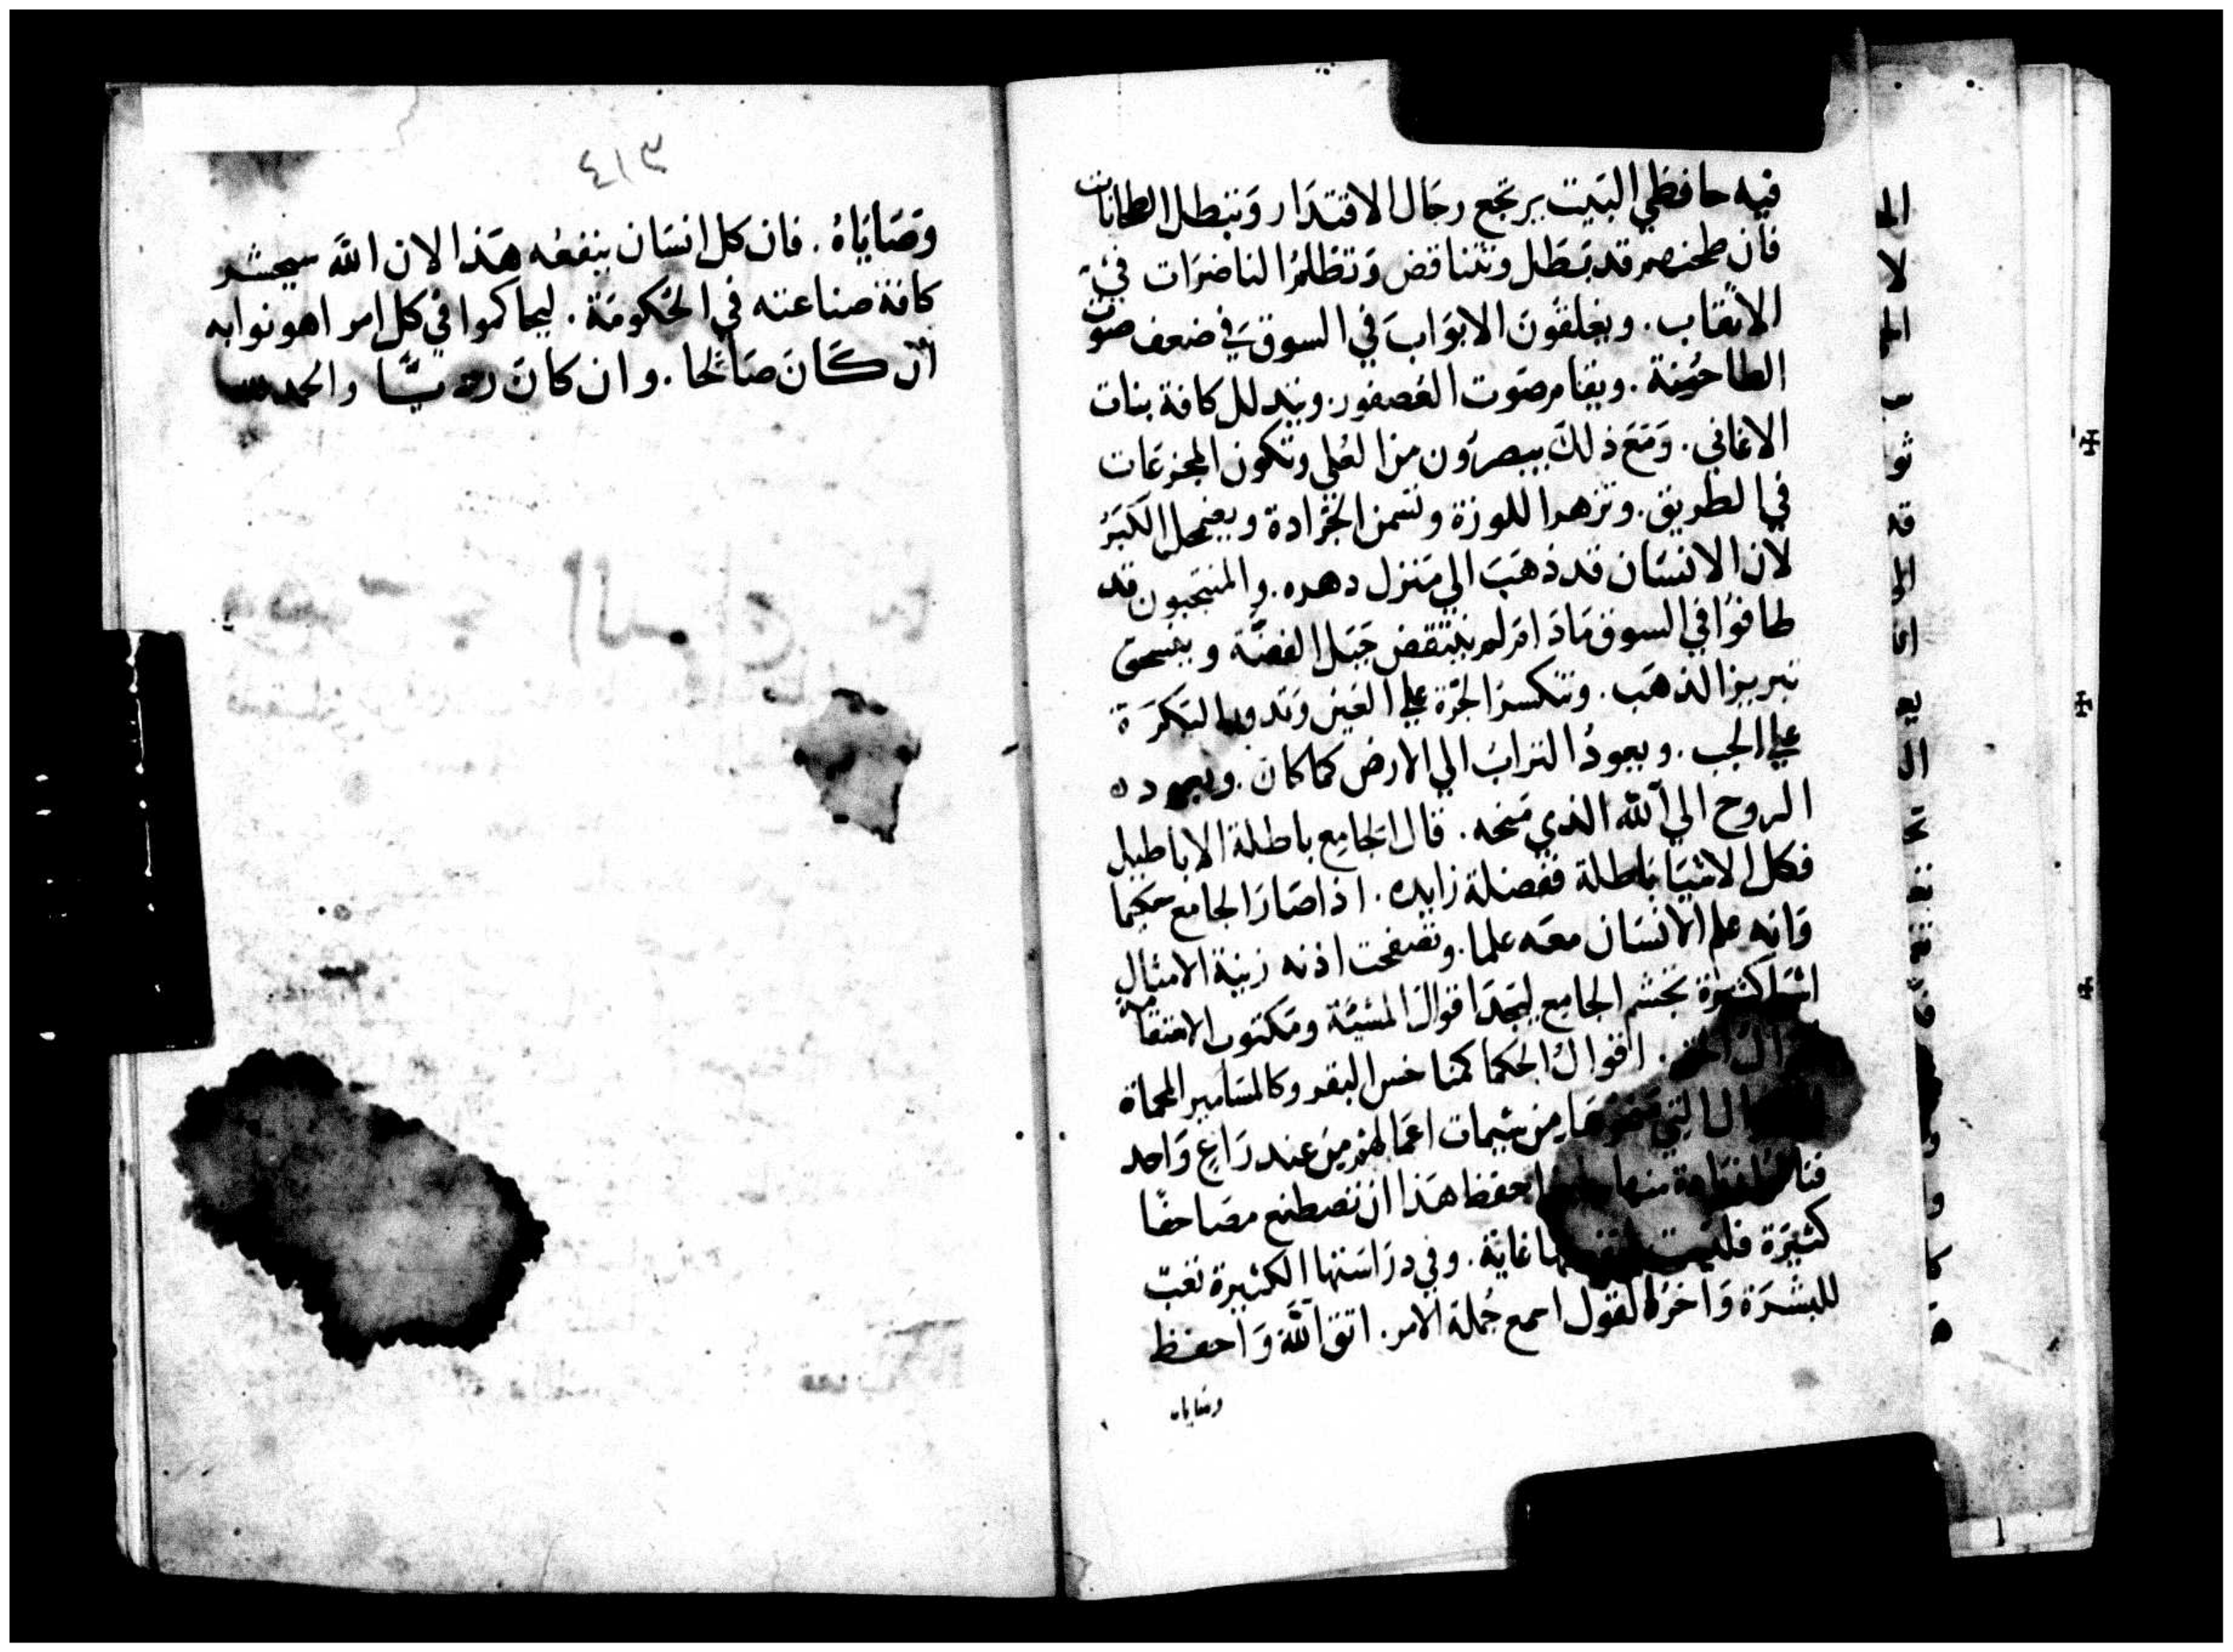 فيه حافظي البيت يرتجع رجال الاقتدار وتبطل الطحانات
فان طحنهم قد بَطَل وتتناقض وَتظلمُ الناضرَات في
الانقاب. ويغلقونَ الابوَابَ في السوقَ في ضعف صوت
الطاحُونة. ويقام صَوت العُصفور. ويتدلل كافة بنات
الاغاني. وَمَعَ ذلكَ يبصرُون من العُلي وتكون المجزعَات
في الطريق. وتزهر اللوزة وتسمن الجَرادة ويضمحل الكبَرُ
لان الانسَان قد ذهَبَ الي مَنزل دهره. والمنتحبون قد
طافوُا في السوق مَادَامَ لم ينتقض حَبَل الفضّة وينسحق
تبريز الذهَب. وتنكسر الجرّة علي العَين وَتدور البَكرَة
علي الجب. ويعودُ الترابُ الي الارض كما كان. ويعود
الروح الي الله الذي مَنحه. قال الجَامِع باطلة الاباطيل
فكل الاشيَا بَاطلة ففضلة زايده. اذ صَارَ الجامع حكيما
وَانه علم الانسَان معَه علما. وتصفحت اذنه زينة الامثال
اشيَا كثيرَة تجشم الجامع ليجدَ اقوالَ المشيئة ومَكتوب الاستقامة
اقوال الحق. اقوالُ الحكما كمناخس البقر وكالمسَامير المحماة
من عند رَاعٍ وَاحد
تحفظ هَذا ان تصطنع مصَاحفًا
كثيرَة فليست غاية. وفي درَاسَتها الكثيرة تعَب
للبشرَة وَآخرُ القول اسمع جُملة الامر. اتق اللهَ وَاحفظ
وصَاياه
٣١٤
وَصَايَاهُ. فان كل انسَان ينفعُه هَذا لان اللهَ سيحشر
كافة صناعته في الحُكومَة. ليحاكموا في كل امر اهونوا به
ان كَانَ صَالحا. وان كانَ رديَّا والحمد لله